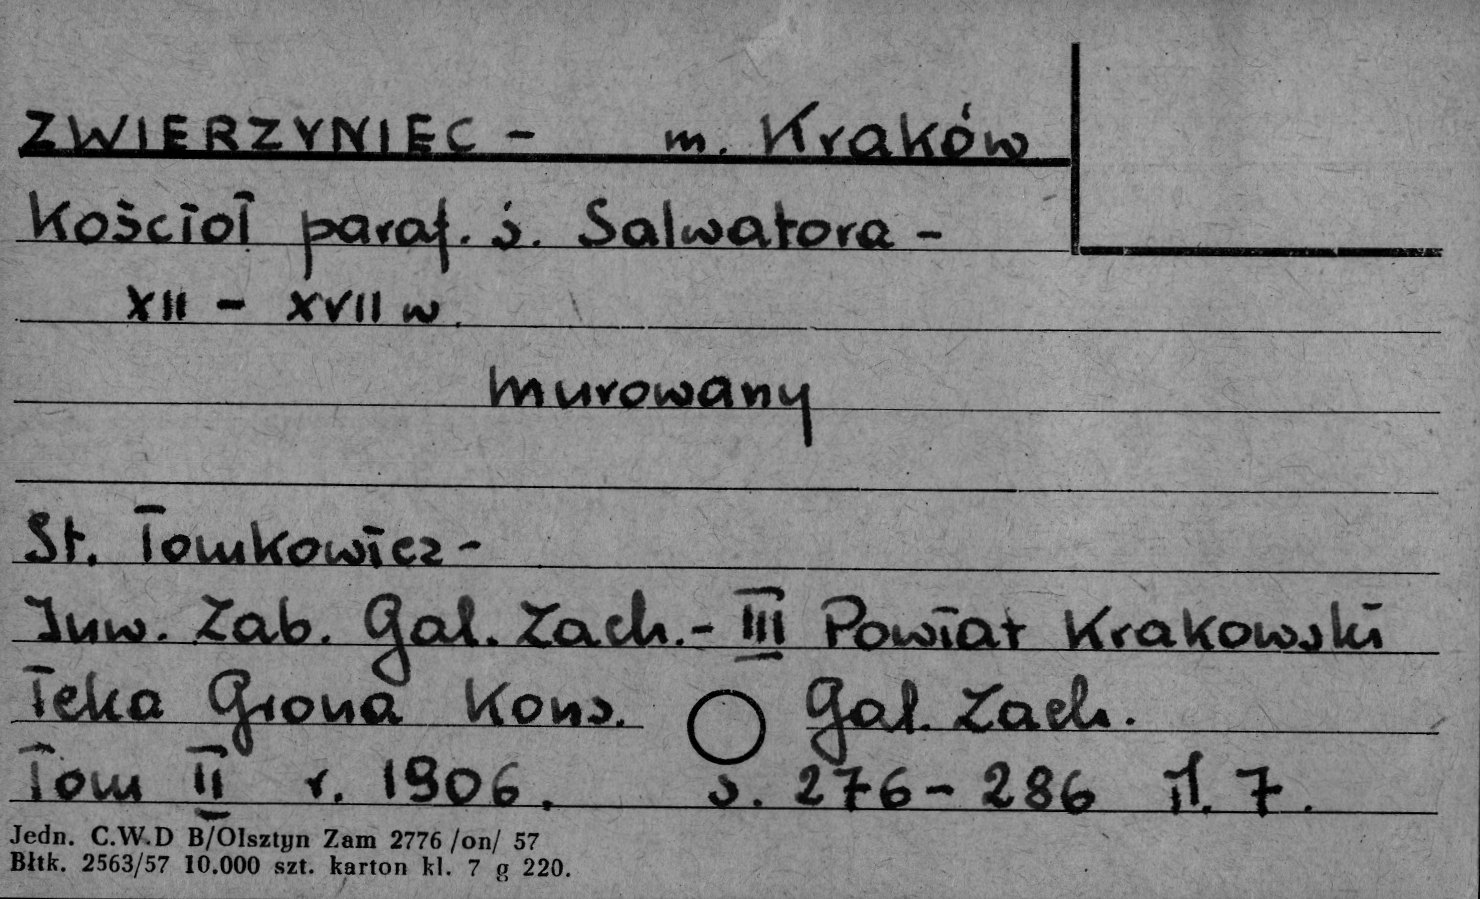 ZWIERZYNIEC - m. Kraków
Kościoł paraf. ś. Salwatora -
XII - XVII w.
murowany
St. Tomkowicz -
Inw. Zab. Gal. Zach. - III Powiat Krakowski
Teka Grona Kons. Gal. Zach.
Tom II r. 1906. s. 276-286 il. 7.
Jedn. C.W.D B/Olsztyn Zam 2776 /on/ 57
Błtk. 2563/57 10.000 szt. karton kl. 7 g 220.